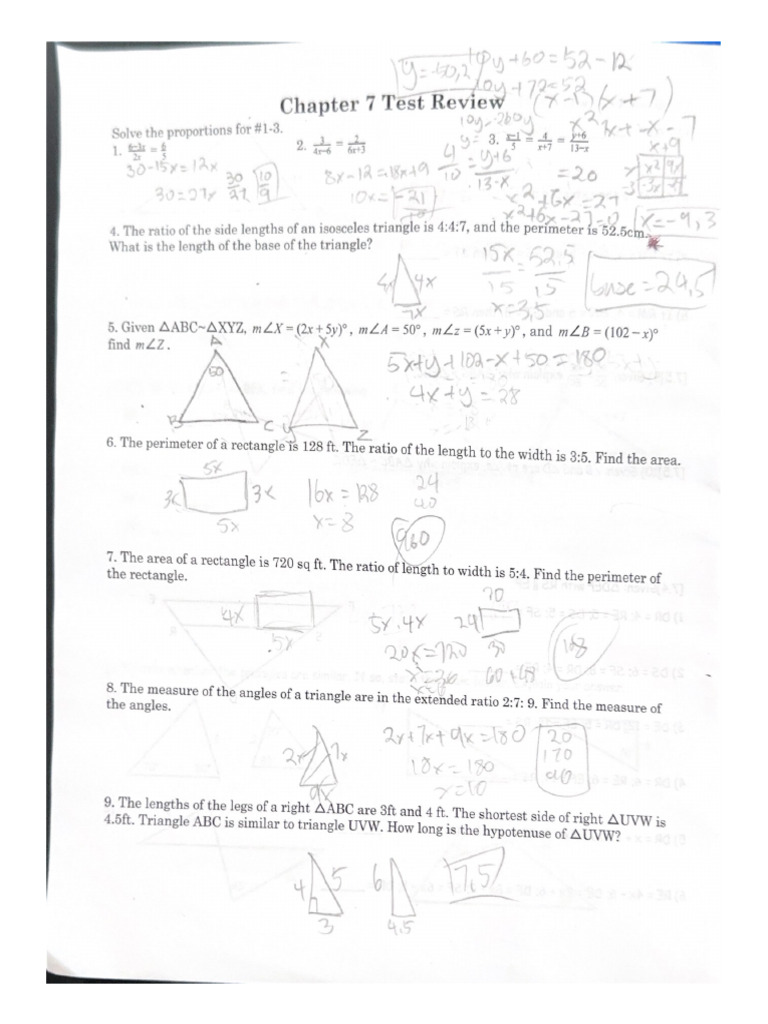 y = -50,2
10y + 60 = 52 - 12
10y + 72 = 52
Chapter 7 Test Review
(x-1)(x+7)
Solve the proportions for #1-3.
1. (6-3x)/(2x) = 6/5
2. 1/(4x-6) = 2/(6x+3)
3. (x-1)/5 = 4/(x+7) = (y+6)/(13-x)
30-15x = 12x
30 = 27x
30/27
10/9
8x-12 = 18x+9
10x = -21
4/10 = (y+6)/(13-x)
= 20
x² + 6x = 27
x² + 6x - 27 = 0
x = -9, 3
4. The ratio of the side lengths of an isosceles triangle is 4:4:7, and the perimeter is 52.5cm.
What is the length of the base of the triangle?
4x 4x
7x
15x = 52.5
15 15
x = 3,5
base = 24,5
5. Given △ABC~△XYZ, m∠X = (2x + 5y)°, m∠A = 50°, m∠z = (5x + y)°, and m∠B = (102 − x)°
find m∠Z.
A X
50
B C Y Z
5x+y+102-x+50 = 180
4x+y = 28
6. The perimeter of a rectangle is 128 ft. The ratio of the length to the width is 3:5. Find the area.
5x
3x 3x
5x
16x = 128
x = 8
24
40
960
7. The area of a rectangle is 720 sq ft. The ratio of length to width is 5:4. Find the perimeter of
the rectangle.
4x
5x
5x . 4x
24
30
60 + 48
108
x = 36
x = 6
8. The measure of the angles of a triangle are in the extended ratio 2:7: 9. Find the measure of
the angles.
2x 7x
9x
2x+7x+9x = 180
18x = 180
x = 10
20
170
90
9. The lengths of the legs of a right △ABC are 3ft and 4 ft. The shortest side of right △UVW is
4.5ft. Triangle ABC is similar to triangle UVW. How long is the hypotenuse of △UVW?
4 5
3
6
4.5
7,5